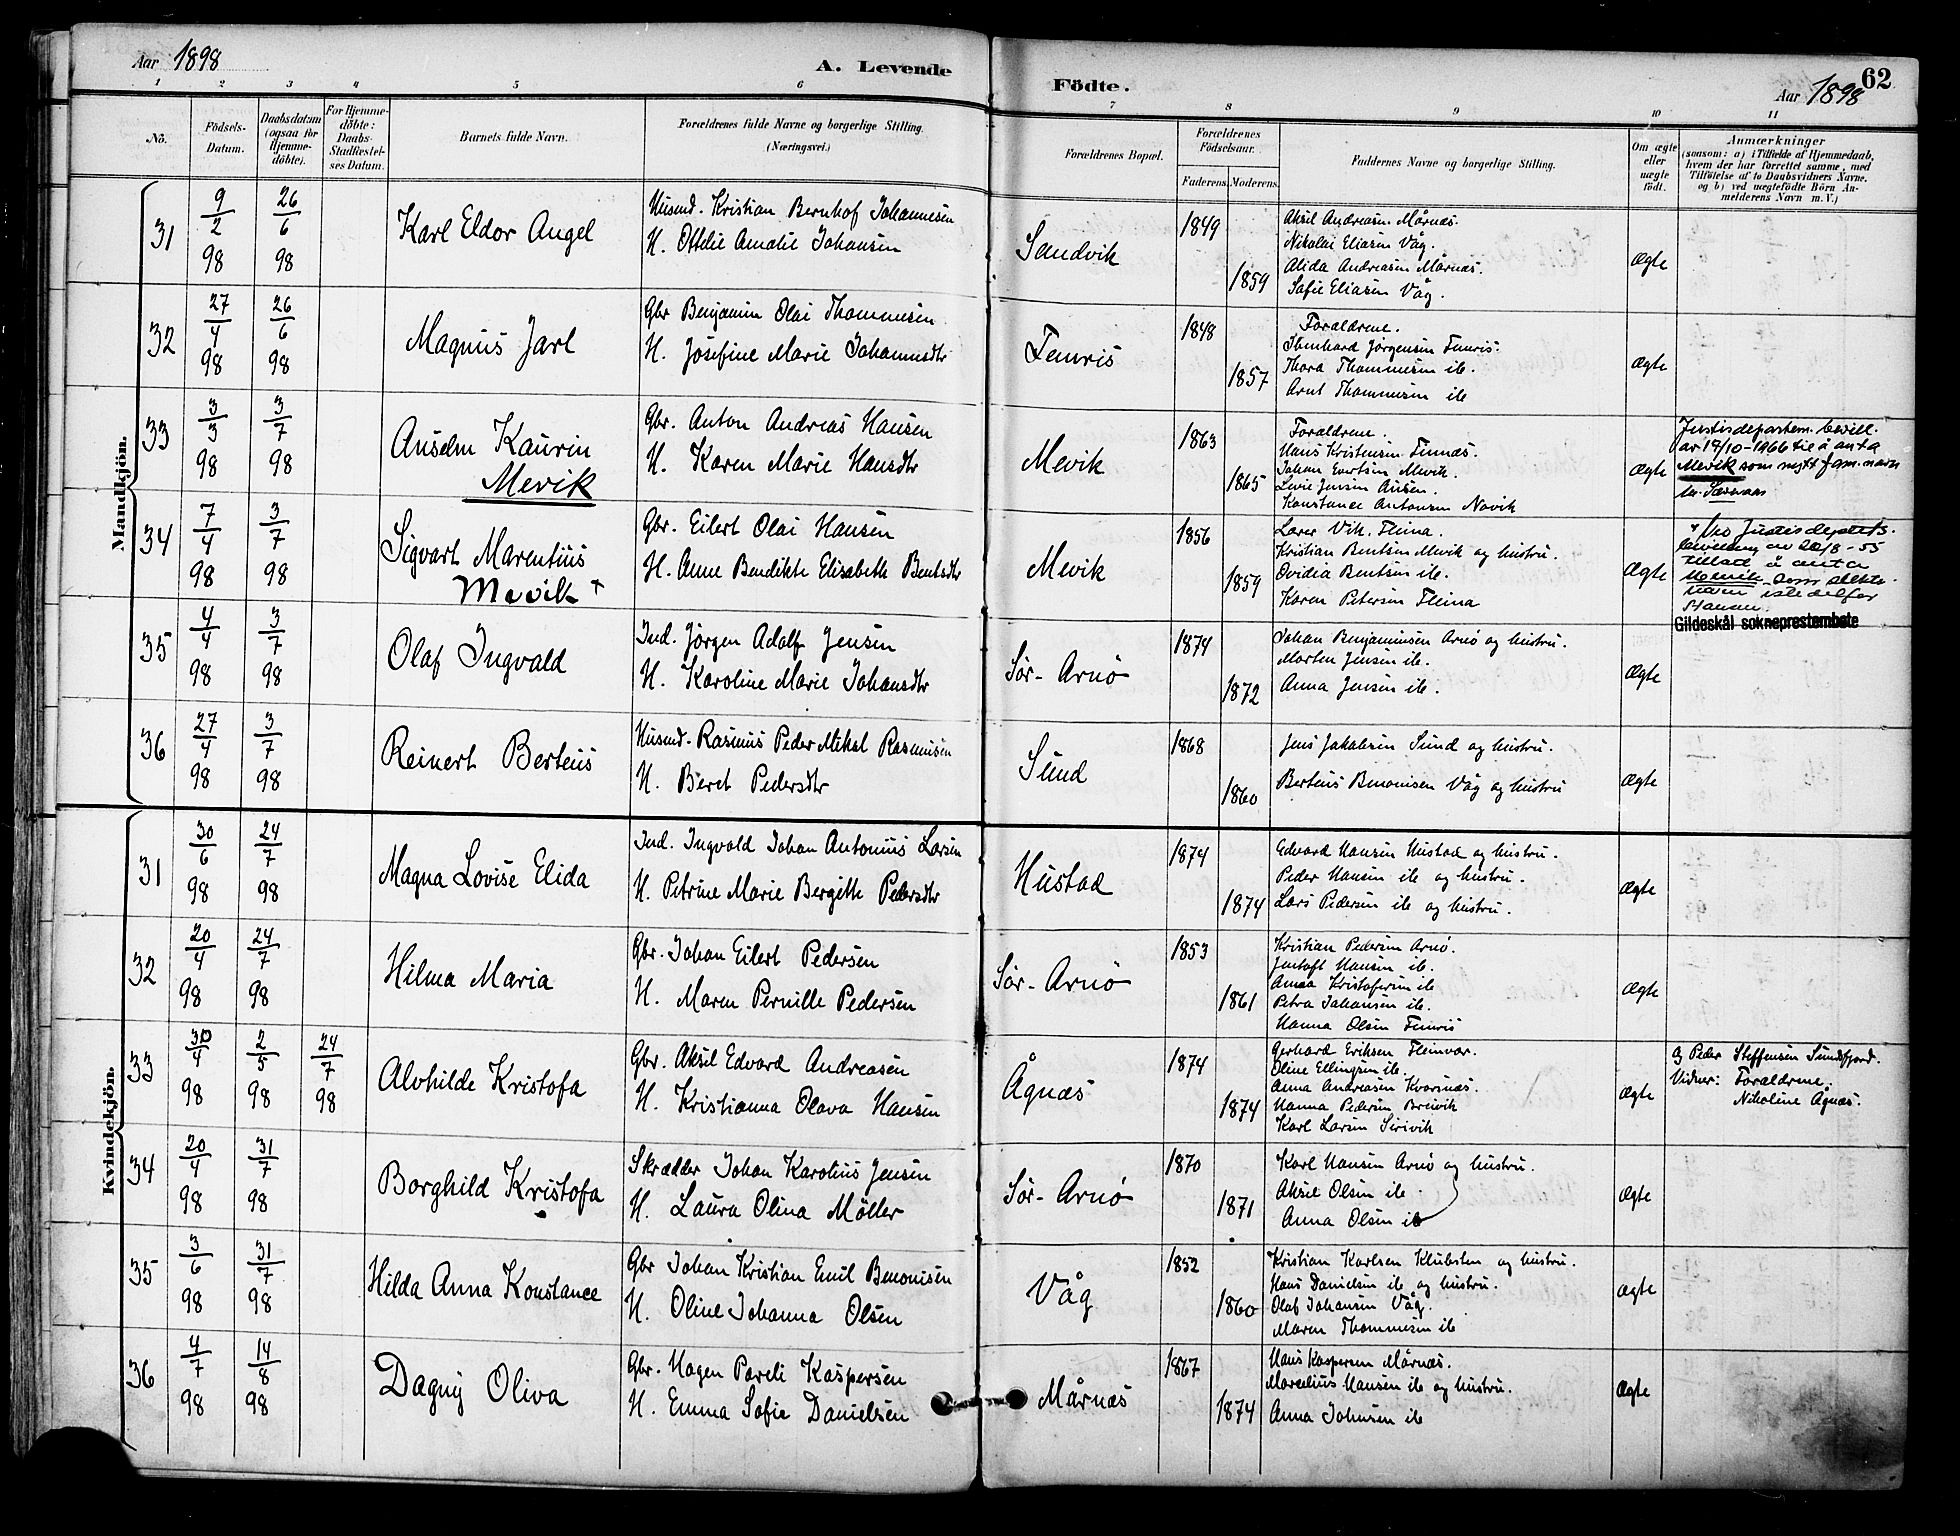 Aar 1898
A. Levende
Födte.
62
Aar 1898
1 2 3 4 5 6 7 8 9 10 11
No.
Födsels-Datum.
Daabsdatum (ogsaa for Hjemme-döbte).
For Hjemme-döbte: Daabs-Stadfæstel-ses Datum.
Barnets fulde Navn.
Forældrenes fulde Navne og borgerlige Stilling. (Næringsvei.)
Forældrenes Bopæl.
Forældrenes Födselsaar.
Faderens. Moderens.
Faddernes Navne og borgerlige Stilling.
Om ægte eller uægte födt.
Anmærkninger
(saasom: a) i Tilfælde af Hjemmedaab, hvem der har forrettet samme, med Tilföielse af to Daabsvidners Navne. og b) ved uægtefödte Börn An-melderens Navn m.V.)
Mandkjön.
31 9/2 98 26/6 98 Karl Eldor Angel
Husmd. Kristian Bernhof Johannesen
H. Ottelie Amalie Johansen
Sandvik 1849 1859
Aksel Andreasen Mårnæs.
Nikolai Eliasen Våg.
Alida Andreasen Mårnæs.
Sofie Eliasen Våg.
Ægte
32 27/4 98 26/6 98 Magnus Jarl
Gbr Benjamin Olai Thommesen
H. Josefine Marie Johannesdtr
Fenris 1848 1857
Forældrene.
Ibenhard Jørgensen Fenris.
Thora Thommesen ib.
Arnt Thommesen ib
Ægte
33 3/3 98 3/7 98 Anselm Kaurin
Mevik
Gbr. Anton Andreas Hansen
H. Karen Marie Hansdtr
Mevik 1863 1865
Forældrene.
Hans Kristensen Finnæs.
Johan Evertsen Mevik.
Jensen
Konstance Antonsen Novik
Ægte
Justisdepartem. bevill.
av 17/10-1966 til å anta
Mevik som nytt fam.navn
34 7/4 98 3/7 98 Sigvart Marentius
Mevik +
Gbr. Eilert Olai Hansen
H. Anne Bendikte Elisabeth Bentsdtr
Mevik 1856 1859
Lærer Vik, Fleina.
Kristian Bentsen Mevik og hustru.
Ovidia Bentsen ib.
Karen Petersen Fleina
Ægte
+ Ved Justisdeptets
bevilling av 20/8-55
tillatt å anta
Mevik som slekts-
navn istedetfor
Hansen.
Gildeskål sokneprestembete
35 4/4 98 3/7 98 Olaf Ingvald
Ind. Jörgen Adolf Jensen
H. Karoline Marie Johansdtr
Sör-Arnö 1874 1872
Johan Benjaminsen Arnö og hustru.
Morten Jensen ib.
Anna Jensen ib.
Ægte
36 27/4 98 3/7 98 Reinert Berteus
Husmd. Rasmus Peder Mikal Rasmusen
H. Beret Pedersdtr
Sund 1868 1860
Jens Jakobsen Sund og hustru.
Berteus Benonisen Våg og hustru
Ægte
Kvindekjön.
31 30/6 98 24/7 98 Magna Lovise Elida
Ind. Ingvald Johan Antonius Larsen
H. Petrine Marie Bergitte Pedersdtr
Hustad 1874 1874
Edvard Hansen Hustad og hustru.
Peder Hansen ib og hustru.
Lars Pedersen ib og hustru.
Ægte
32 20/4 98 24/7 98 Hilma Maria
Gbr. Johan Eilert Pedersen
H. Maren Pernille Pedersen
Sör-Arnö 1853 1861
Kristian Pedersen Arnö.
Hansen ib.
Anna Kristofersen ib
Petra Johansen ib.
Hanna Olsen Fenris
Ægte
33 30/4 98 2/5 98 24/7 98 Alvhilde Kristofa
Gbr. Aksel Edvard Andreasen
H. Kristianna Olava Hansen
Ågnæs 1874 1874
Gerhard Eriksen Fleinvær.
Oline Ellingsen ib.
Anna Andreasen Kvarsnæs.
Hanna Pedersen Breivik
Karl Larsen
Ægte
Peder Steffensen Sundsfjord.
Vidner: Forældrene.
Nikoline Ågnæs.
34 20/4 98 31/7 98 Borghild Kristofa
Skrædder Johan Karolius Jensen
H. Laura Olina Möller
Sör-Arnö 1870 1871
Karl Hansen Arnö og hustru.
Aksel Olsen ib.
Anna Olsen ib
Ægte
35 3/6 98 31/7 98 Hilda Anna Konstance
Gbr Johan Kristian Emil Benonisen
H. Oline Johanna Olsen
Våg 1852 1860
Kristian Karlsen og hustru.
Hans Danielsen ib og hustru.
Olaf Johansen Våg.
Maren Thommesen ib
Ægte
36 4/7 98 14/8 98 Dagny Oliva
Gbr. Hagen Pareli Kaspersen
H. Emma Sofie Danielsen
Mårnæs 1867 1874
Hans Kaspersen Mårnæs.
Marcelius Hansen ib og hustru.
Anna Johnsen ib
Ægte